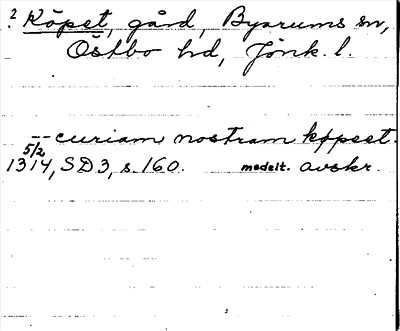 ? Köpet, gård, Byarums sn,
Östbo hd, Jönk. l.
-- curiam nostram køpset.
5/2
1314, SD3, s. 160. medelt. avskr.